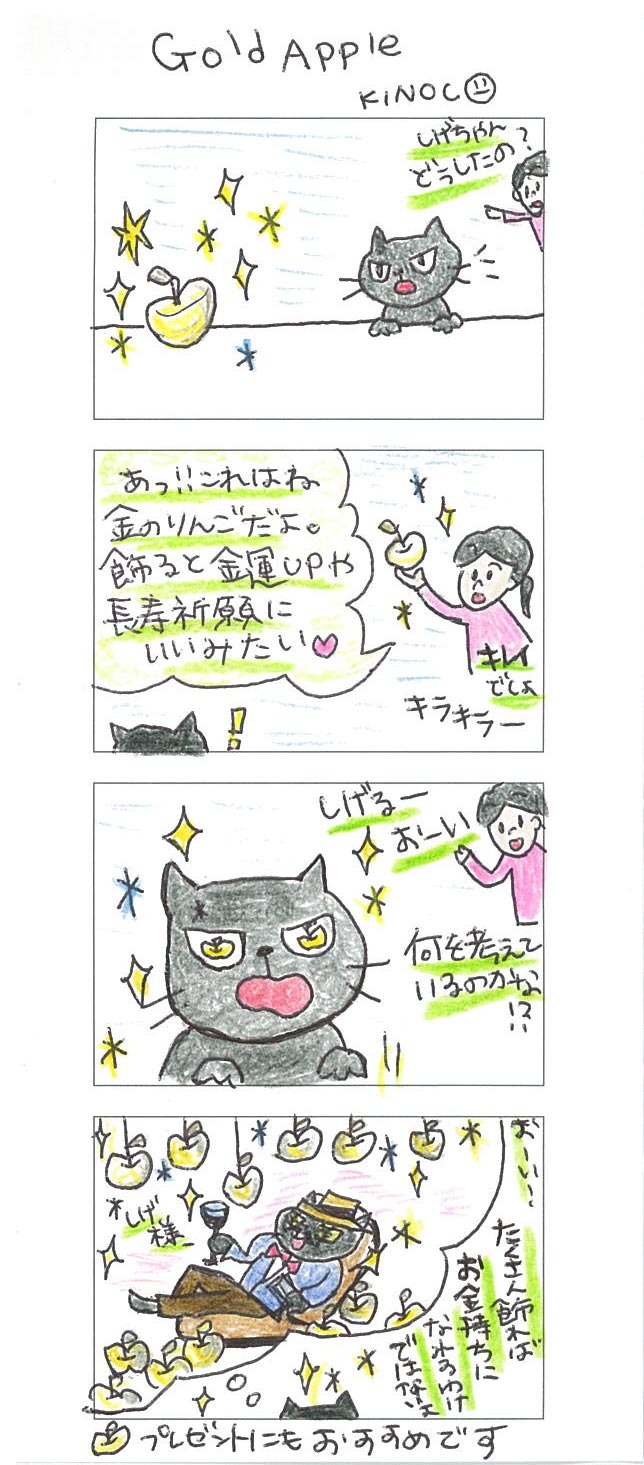 Gold Apple
KINOCO
しげちゃん
どうしたの?
あっ!!これはね
金のりんごだよ。
飾ると金運UPや
長寿祈願に
いいみたい♥
キレイ
でしょ
キラキラー
!
しげるー
おーい
何を考えて
いるのかな
!?
おーい!
たくさん飾れば
お金持ちに
なれるわけ
ではないよ
しげ様
プレゼントにもおすすめです